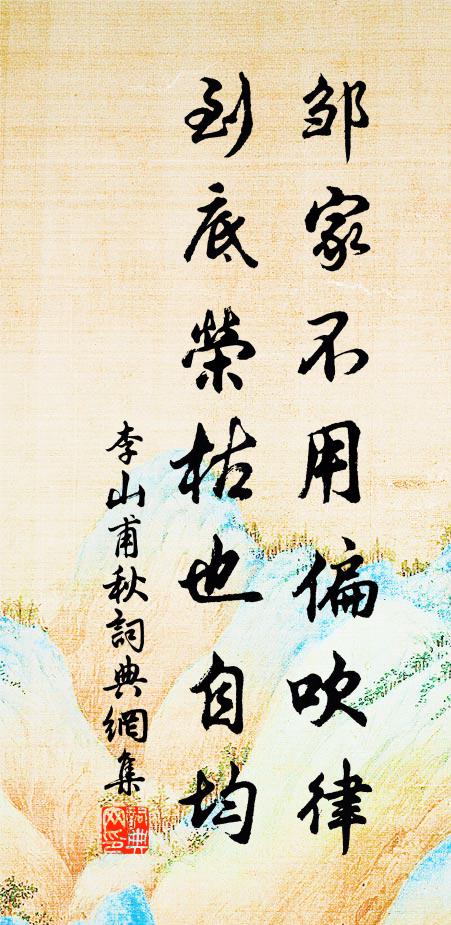 邹家不用偏吹律
到底榮枯也自均
李山甫秋詞典網集
詞典網印